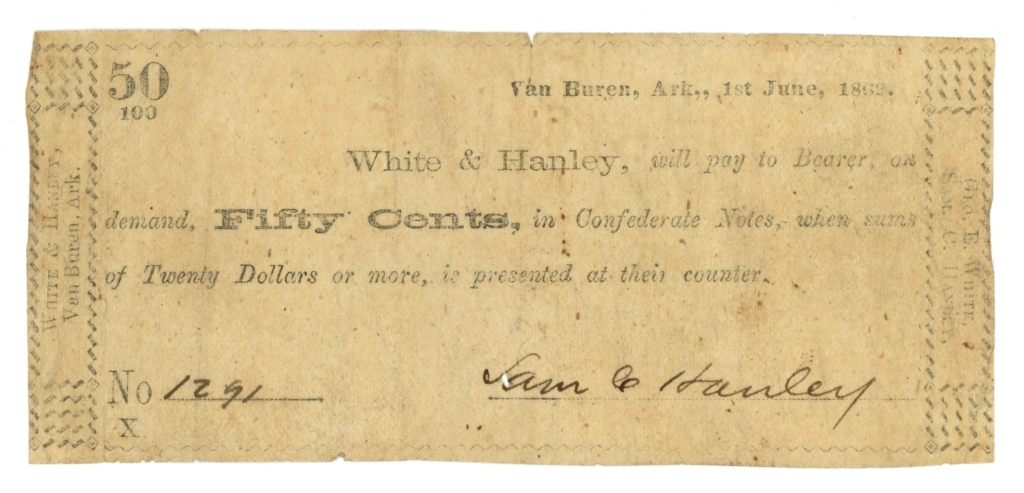 50
100
Van Buren, Ark., 1st June, 1862.
White & Hanley, will pay to Bearer, on
demand, Fifty Cents, in Confederate Notes, when sums
of Twenty Dollars or more, is presented at their counter.
No 1291
Sam C Hanley
X
WHITE & HANLEY,
Van Buren, Ark.
GEO. E. WHITE,
SAM. C. HANLEY.